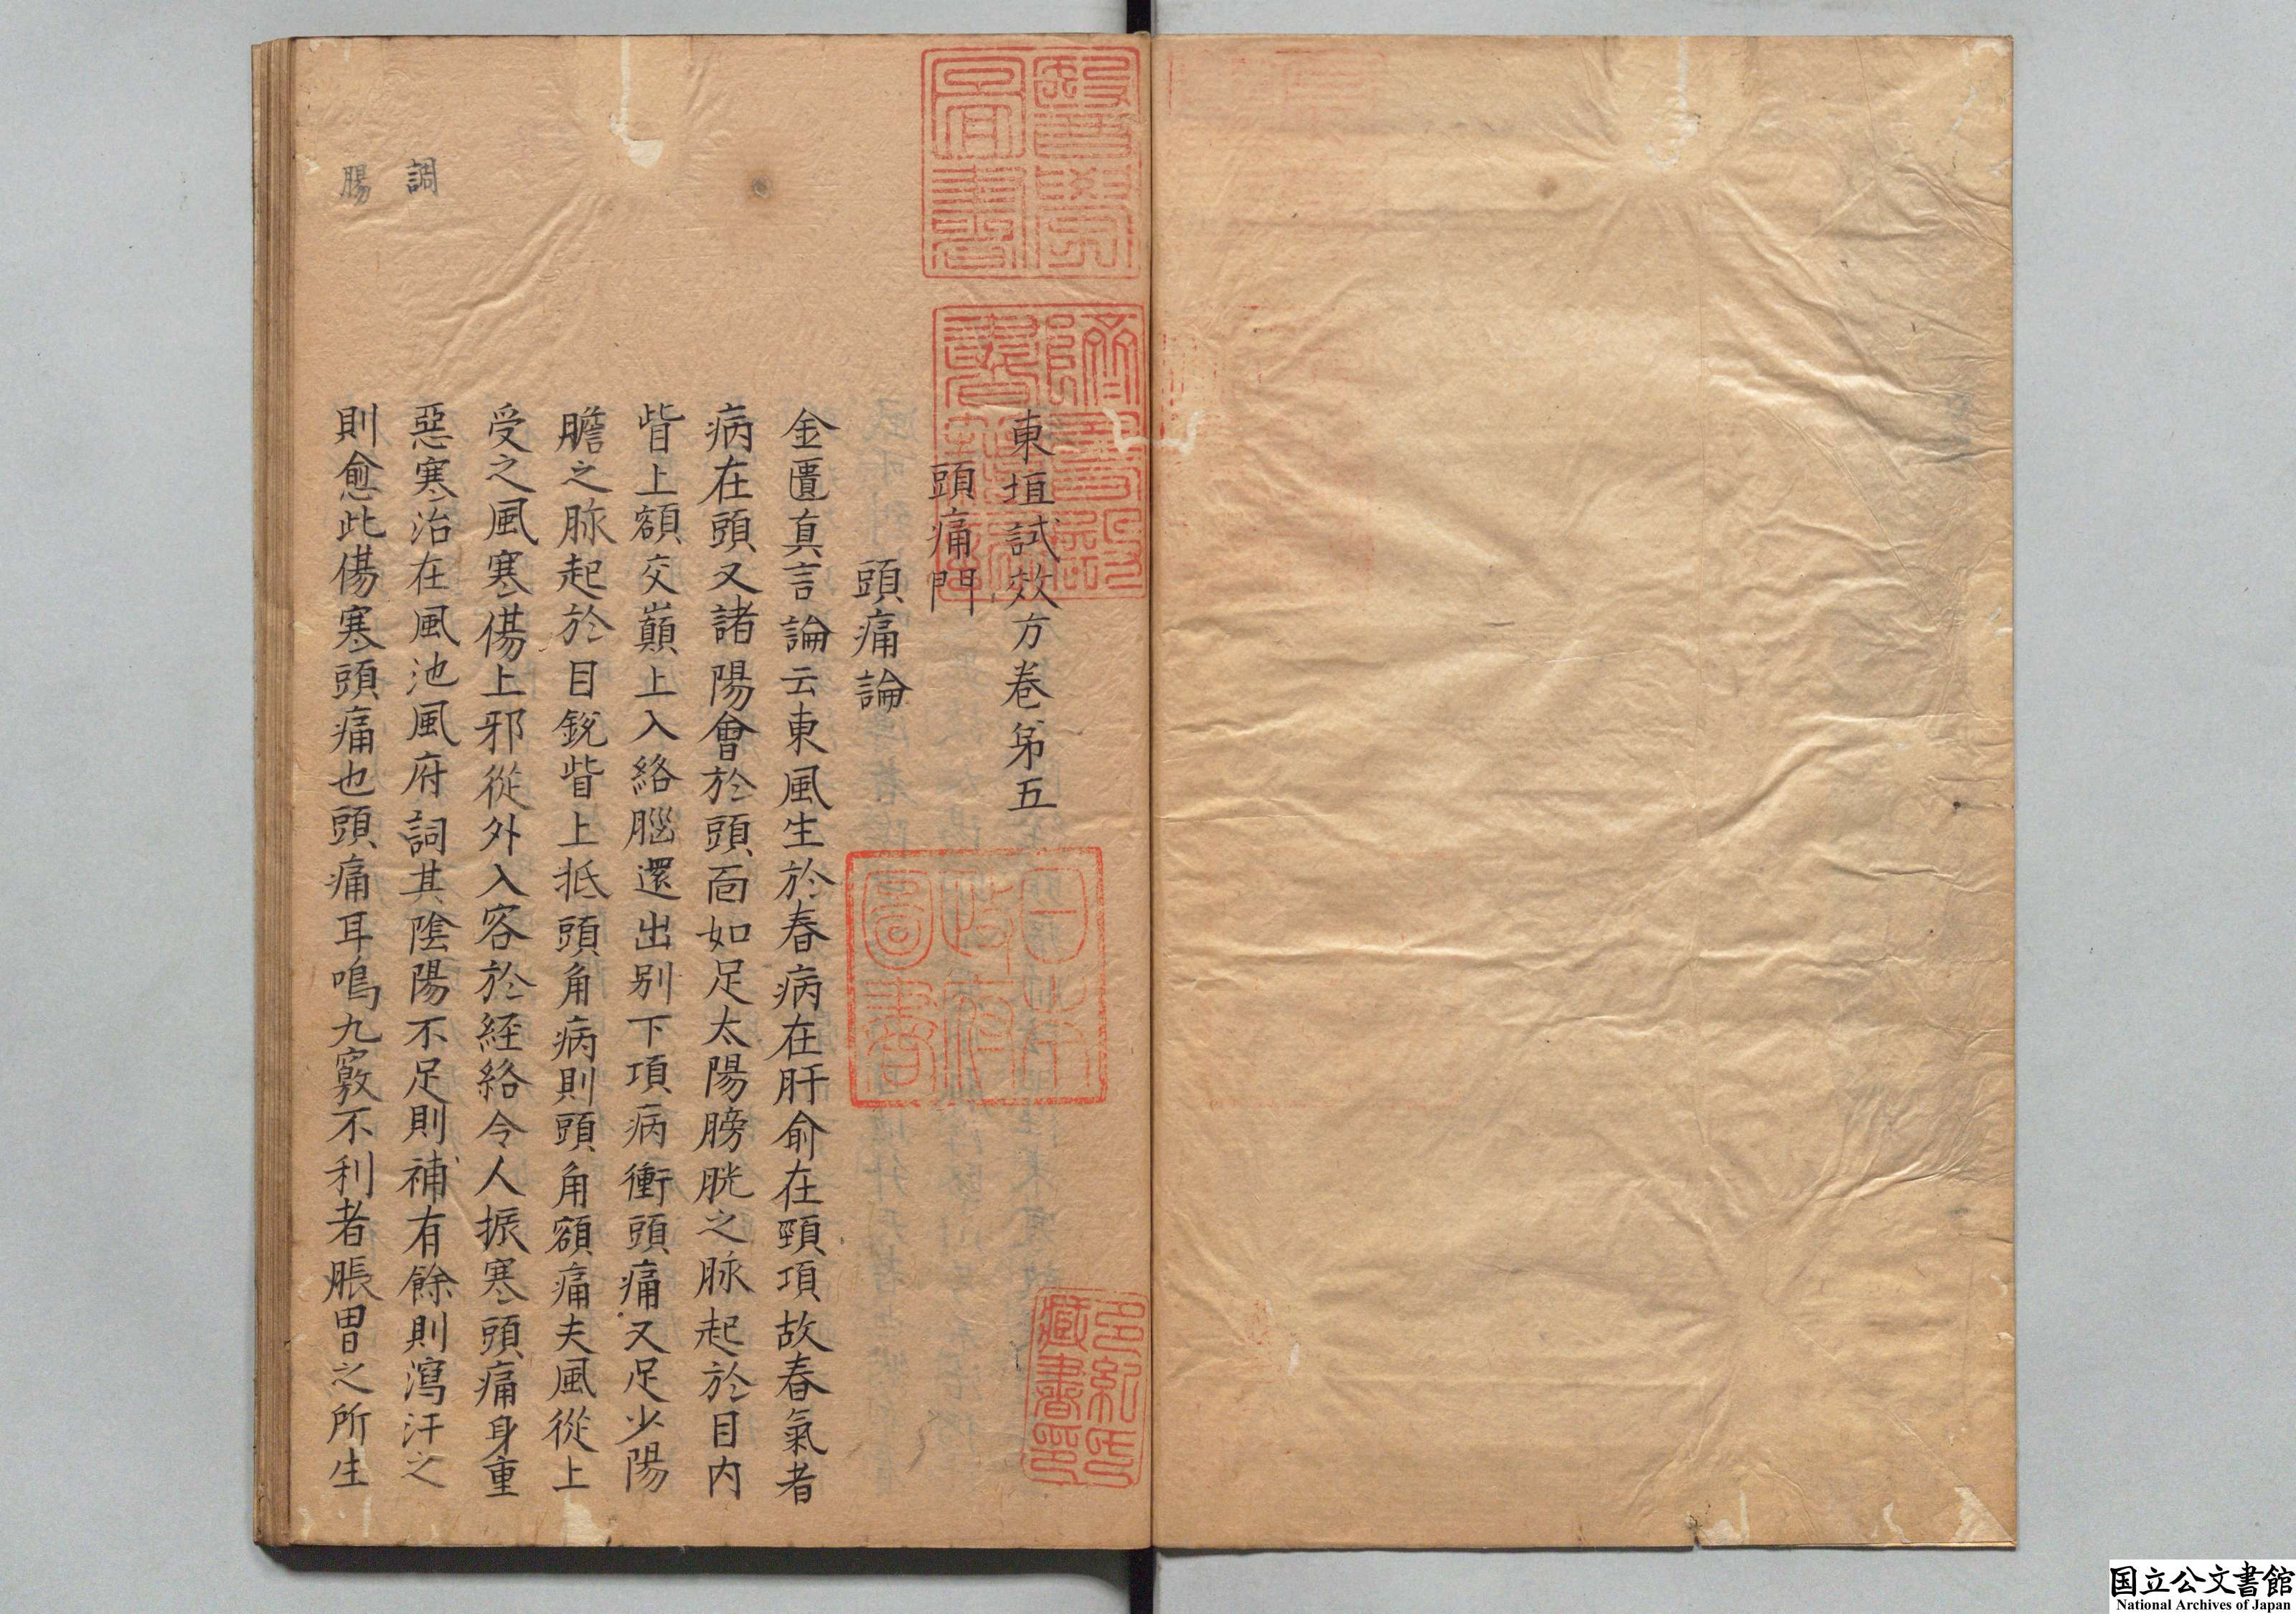 東垣試效方卷第五
頭痛門
頭痛論
金匱真言論云東風生於春病在肝俞在頸項故春氣者
病在頭又諸陽會於頭面如足太陽膀胱之脉起於目内
眥上額交巔上入絡腦還出别下項病衝頭痛又足少陽
膽之脉起於目銳眥上抵頭角病則頭角額痛夫風從上
受之風寒傷上邪從外入客於経絡令人振寒頭痛身重
惡寒治在風池風府詞其陰陽不足則補有餘則瀉汗之
則愈此傷寒頭痛也頭痛耳鳴九竅不利者脹胃之所生
調
腸
醫學圖書
躋壽殿書籍記
日本政府圖書
多紀氏藏書印
国立公文書館
National Archives of Japan